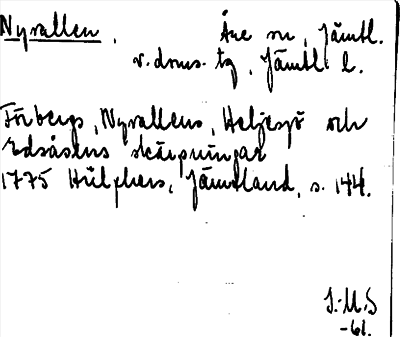 Nyvallen. Åre sn, Jämtl.
v. Jämtl l.
Förbergs, Nyvallens, Heljesjö och
Edsåsens skärpningar
1775 Hülphers, Jämtland, s. 144.
J. M. S
-61.